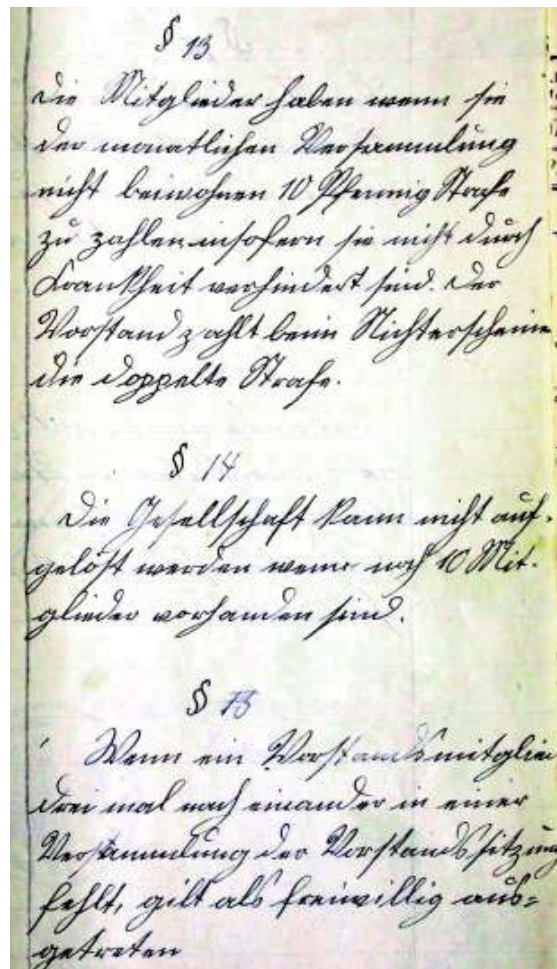 § 13
Die Mitglieder haben wenn sie
der monatlichen Versammlung
nicht beiwohnen 10 Pfennig Strafe
zu zahlen insofern sie nicht durch
Krankheit verhindert sind. Der
Vorstand zahlt beim Nichterscheine
die doppelte Strafe.
§ 14
Die Gesellschaft kann nicht auf-
gelöst werden wenn noch 10 Mit-
glieder vorhanden sind.
§ 15
Wenn ein Vorstandsmitglied
drei mal nach einander in einer
Versammlung der Vorstandssitzung
fehlt, gilt als freiwillig aus-
getreten